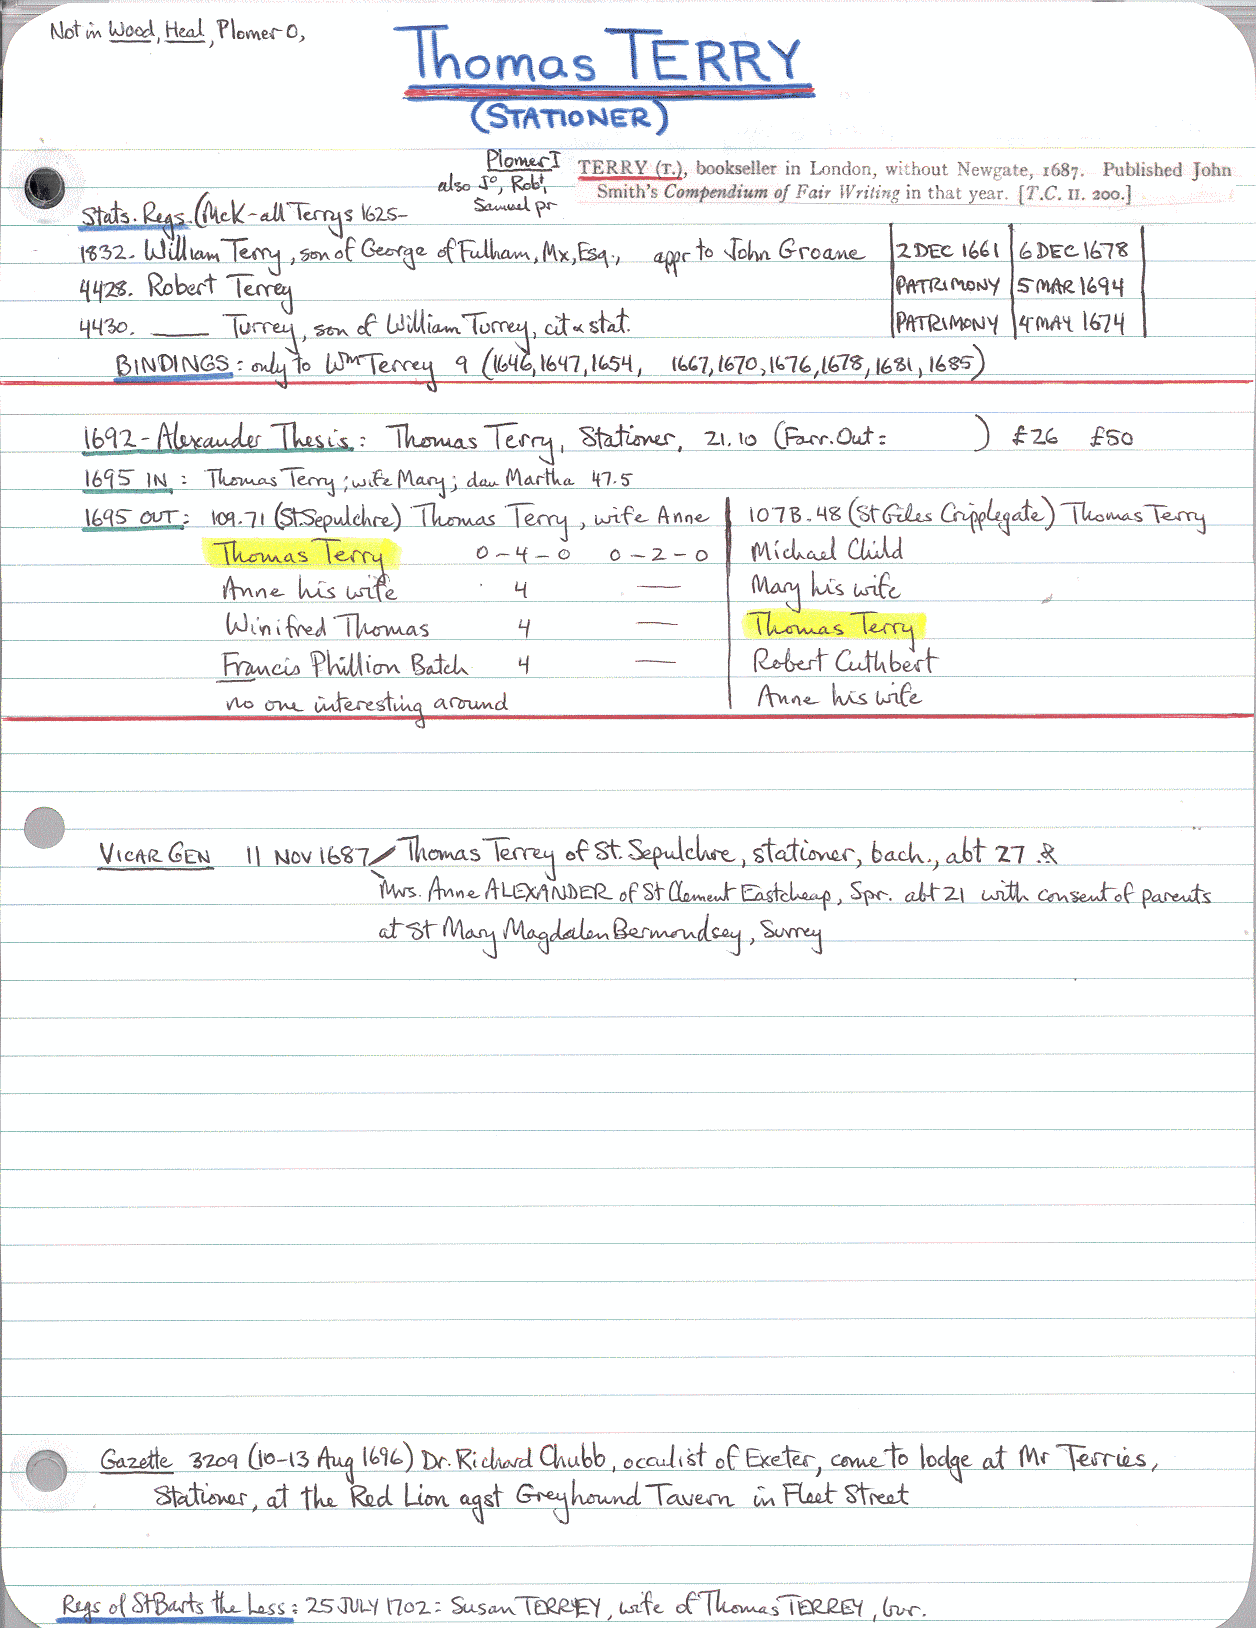 Not in Wood, Heal, Plomer O,
Thomas TERRY
(STATIONER)
Plomer I
also Jo, Robt,
Samuel pr
TERRY (T.), bookseller in London, without Newgate, 1687. Published John
Smith's Compendium of Fair Writing in that year. [T.C. II. 200.]
Stats. Regs. (McK-all Terrys 1625-
1832. William Terry, son of George of Fulham, Mx, Esq., appr to John Groane 2 DEC 1661 6 DEC 1678
4428. Robert Terrey PATRIMONY 5 MAR 1694
4430. ___ Turrey, son of William Turrey, cit & stat. PATRIMONY 4 MAY 1674
BINDINGS: only to Wm Terrey 9 (1646, 1647, 1654, 1667, 1670, 1676, 1678, 1681, 1685)
1692 - Alexander Thesis: Thomas Terry, Stationer, 21.10 (Farr. Out: ) £26 £50
1695 IN: Thomas Terry; wife Mary; dau Martha 47.5
1695 OUT: 109.71 (St. Sepulchre) Thomas Terry, wife Anne
Thomas Terry 0-4-0 0-2-0
Anne his wife 4 —
Winifred Thomas 4 —
Francis Phillion Batch 4 —
no one interesting around
107B.48 (St Giles Cripplegate) Thomas Terry
Michael Child
Mary his wife
Thomas Terry
Robert Cuthbert
Anne his wife
VICAR GEN 11 NOV 1687 Thomas Terrey of St. Sepulchre, stationer, bach., abt 27 &
Mrs. Anne ALEXANDER of St Clement Eastcheap, Spr. abt 21 with consent of parents
at St Mary Magdalen Bermondsey, Surrey
Gazette 3209 (10-13 Aug 1696) Dr. Richard Chubb, occulist of Exeter, come to lodge at Mr Terries,
Stationer, at the Red Lion agst Greyhound Tavern in Fleet Street
Regs of St Barts the Less: 25 JULY 1702: Susan TERREY, wife of Thomas TERREY, bur.